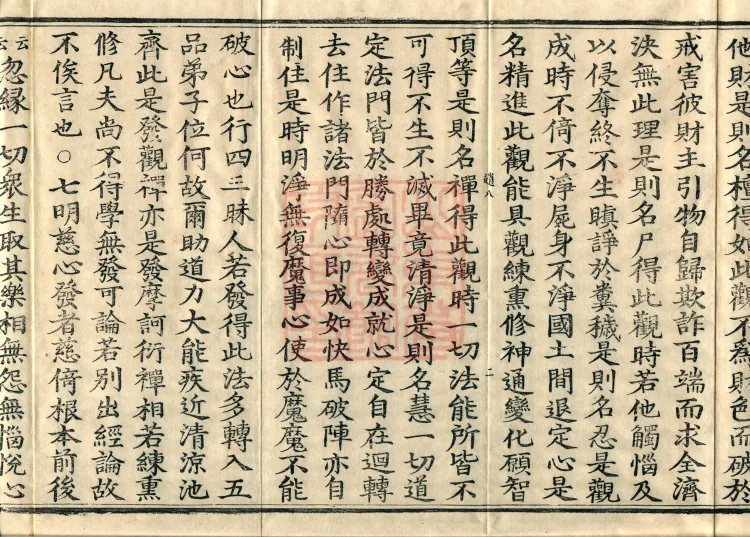 他財是則名檀得如此觀不爲財色而破於
戒害彼財主引物自歸欺詐百端而求全濟
決無此理是則名尸得此觀時若他觸惱及
以侵奪終不生瞋諍於糞穢是則名忍是觀
成時不倚不淨屍身不淨國土間退定心是
名精進此觀能具觀練熏修神通變化願智
頂等是則名禪得此觀時一切法能所皆不
可得不生不滅畢竟清淨是則名慧一切道
定法門皆於勝處轉變成就心定自在迴轉
去住作諸法門隨心即成如快馬破陣亦自
制住是時明淨無復魔事心使於魔魔不能
破心也行四三昧人若發得此法多轉入五
品弟子位何故爾助道力大能疾近清涼池
齊此是發觀禪亦是發摩訶衍禪相若練熏
修凡夫尚不得學無發可論若別出經論故
不俟言也○七明慈心發者慈倚根本前後
云云忽緣一切衆生取其樂相無怨無惱悅心
二